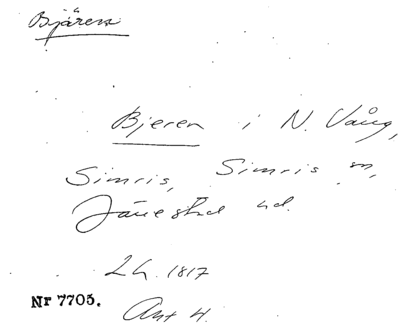 Bjären
Bjeren i N. Vång,
Simris, Simris sn,
Järrestad hd.
LH. 1817
Nr 7705.
Akt 4.